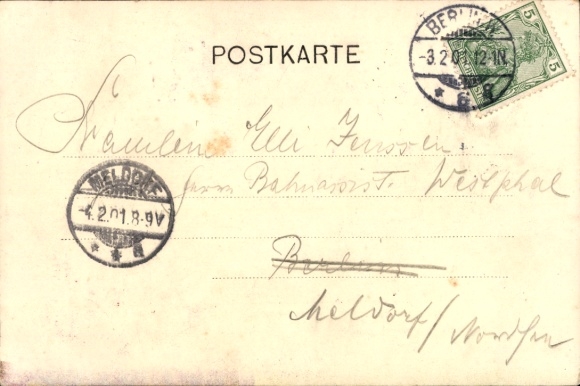 POSTKARTE
BERLIN.W
-3.2.01.12-1N.
* 8 a
5
5
Fräulein Elli Jenssen
Herrn Bahnassist. Westphal
MELDORF
4.2.01.8-9V
* * a
Berlin
Meldorf / Nordsee